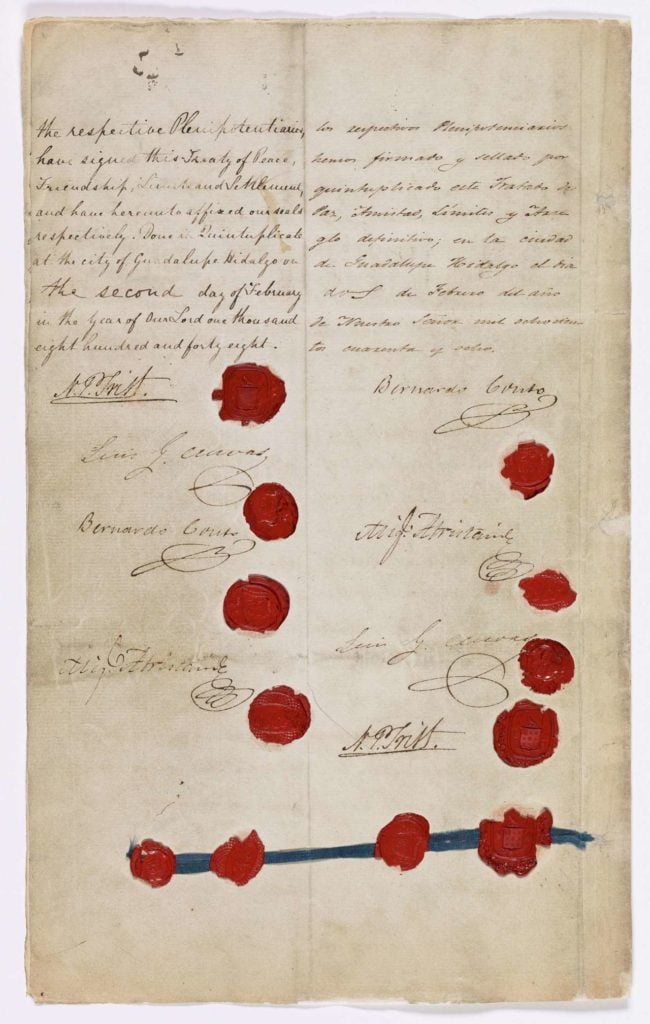 the respective Plenipotentiaries
have signed this Treaty of Peace,
Friendship, Limits and Settlement,
and have hereunto affixed our seals
respectively. Done in Quintuplicate
at the city of Guadalupe Hidalgo on
the second day of February
in the Year of Our Lord one thousand
eight hundred and forty eight.
N. P. Trist.
Luis G. Cuevas
Bernardo Couto
Migl. Atristain
los respectivos Plenipotenciarios
hemos firmado y sellado por
quintuplicado este Tratado de
Paz, Amistad, Límites y Arre-
glo definitivo; en la ciudad
de Guadalupe Hidalgo el dia
dos de Febrero del año
de Nuestro Señor mil ochocien-
tos cuarenta y ocho.
Bernardo Couto
Migl. Atristain
Luis G. Cuevas
N. P. Trist.